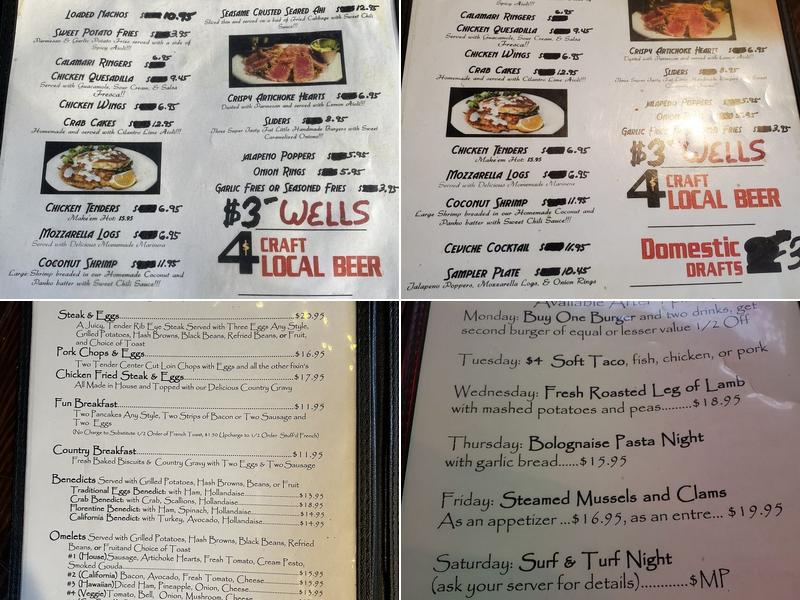 Loaded Nachos $ 10.95
Sweet Potato Fries $ 3.95
Parmesan & Garlic Potato Fries served with a side of
Spicy Aioli!!!
Calamari Ringers $ 6.95
Chicken Quesadilla $ 9.45
Served with Guacamole, Sour Cream, & Salsa
Fresca!!
Chicken Wings $ 6.95
Crab Cakes $ 12.95
Homemade and served with Cilantro Lime Aioli!!!
Chicken Tenders $ 6.95
Make'em Hot: $5.95
Mozzarella Logs $ 6.95
Served with Delicious Homemade Marinara
Coconut Shrimp $ 11.95
Large Shrimp breaded in our Homemade Coconut and
Panko batter with Sweet Chili Sauce!!!
Seasame Crusted Seared Ahi $ 12.95
Sliced thin and served on a bed of Fried Cabbage with Sweet Chili
Sauce!!!
Crispy Artichoke Hearts $ 6.95
Dusted with Parmesan and served with Lemon Aioli!!!
Sliders $ 8.95
Three Super Tasty Fat Little Handmade Burgers with Sweet
Caramelized Onions!!!
Jalapeno Poppers $ 5.95
Onion Rings $ 5.95
Garlic Fries or Seasoned Fries $ 3.95
$3- WELLS
4$ CRAFT
LOCAL BEER
Calamari Ringers $ 6.95
Chicken Quesadilla $ 9.45
Served with Guacamole, Sour Cream, & Salsa
Fresca!!
Chicken Wings $ 6.95
Crab Cakes $ 12.95
Homemade and served with Cilantro Lime Aioli!!!
Chicken Tenders $ 6.95
Make'em Hot: $5.95
Mozzarella Logs $ 6.95
Served with Delicious Homemade Marinara
Coconut Shrimp $ 11.95
Large Shrimp breaded in our Homemade Coconut and
Panko batter with Sweet Chili Sauce!!!
Ceviche Cocktail $ 11.95
Sampler Plate $ 10.45
Jalapeno Poppers, Mozzarella Logs, & Onion Rings
Crispy Artichoke Hearts $ 6.95
Dusted with Parmesan and served with Lemon Aioli!!!
Sliders $ 8.95
Three Super Tasty Fat Little Handmade Burgers with Sweet
Jalapeno Poppers $5.95
Onion $5.95
Garlic Fries Fries $3.95
$3- WELLS
4$ CRAFT
LOCAL BEER
Domestic
DRAFTS 3
Steak & Eggs
A Juicy, Tender Rib Eye Steak Served with Three Eggs Any Style,
Grilled Potatoes, Hash Browns, Black Beans, Refried Beans, or Fruit,
and Choice of Toast
Pork Chops & Eggs $16.95
Two Tender Center Cut Loin Chops with Eggs and all the other fixin's
Chicken Fried Steak & Eggs $17.95
All Made in House and Topped with our Delicious Country Gravy
Fun Breakfast $11.95
Two Pancakes Any Style, Two Strips of Bacon or Two Sausage and
Two Eggs
(No Charge to Substitute 1/2 Order of French Toast, $1.50 Upcharge to 1/2 Order Stuff'd French)
Country Breakfast $11.95
Fresh Baked Biscuits & Country Gravy with Two Eggs & Two Sausage
Benedicts Served with Grilled Potatoes, Hash Browns, Beans, or Fruit
Traditional Eggs Benedict: with Ham, Hollandaise $13.95
Crab Benedict: with Crab, Scallions, Hollandaise $18.95
Florentine Benedict: with Ham, Spinach, Hollandaise $14.95
California Benedict: with Turkey, Avocado, Hollandaise $14.95
Omelets Served with Grilled Potatoes, Hash Browns, Black Beans, Refried
Beans, or Fruit and Choice of Toast
#1 (House) Sausage, Artichoke Hearts, Fresh Tomato, Cream Pesto,
Smoked Gouda $15.95
#2 (California) Bacon, Avocado, Fresh Tomato, Cheese $15.95
#3 (Hawaiian) Diced Ham, Pineapple, Onion, Cheese $13.95
#4 (Veggie) Tomato, Bell, Onion, Mushroom, Cheese
Available After
Monday: Buy One Burger and two drinks, get
second burger of equal or lesser value 1/2 Off
Tuesday: $4 Soft Taco, fish, chicken, or pork
Wednesday: Fresh Roasted Leg of Lamb
with mashed potatoes and peas.........$18.95
Thursday: Bolognaise Pasta Night
with garlic bread......$15.95
Friday: Steamed Mussels and Clams
As an appetizer ...$16.95, as an entre... $19.95
Saturday: Surf & Turf Night
(ask your server for details)............$MP